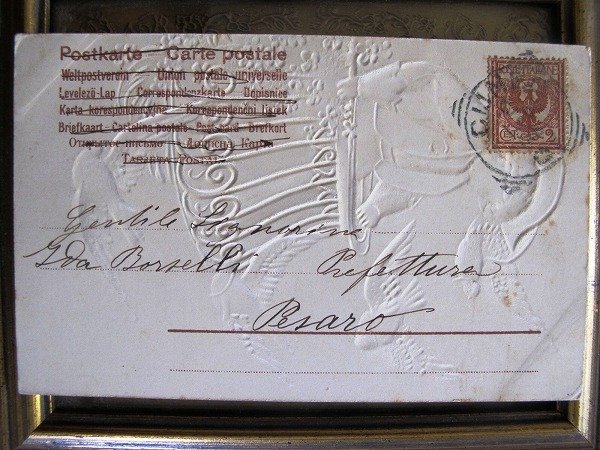 Postkarte — Carte postale
Weltpostverein — Union postale universelle
Levelező-Lap Correspondenzkarte Dopisnice
Karta korespondencyjna Korespondenčni listek
Briefkaart Cartolina postale Postcard Brefkort
Открытое письмо
Tarjeta Postal
Gentile Signorina
Ida Borselli Prefettura
Pesaro
2